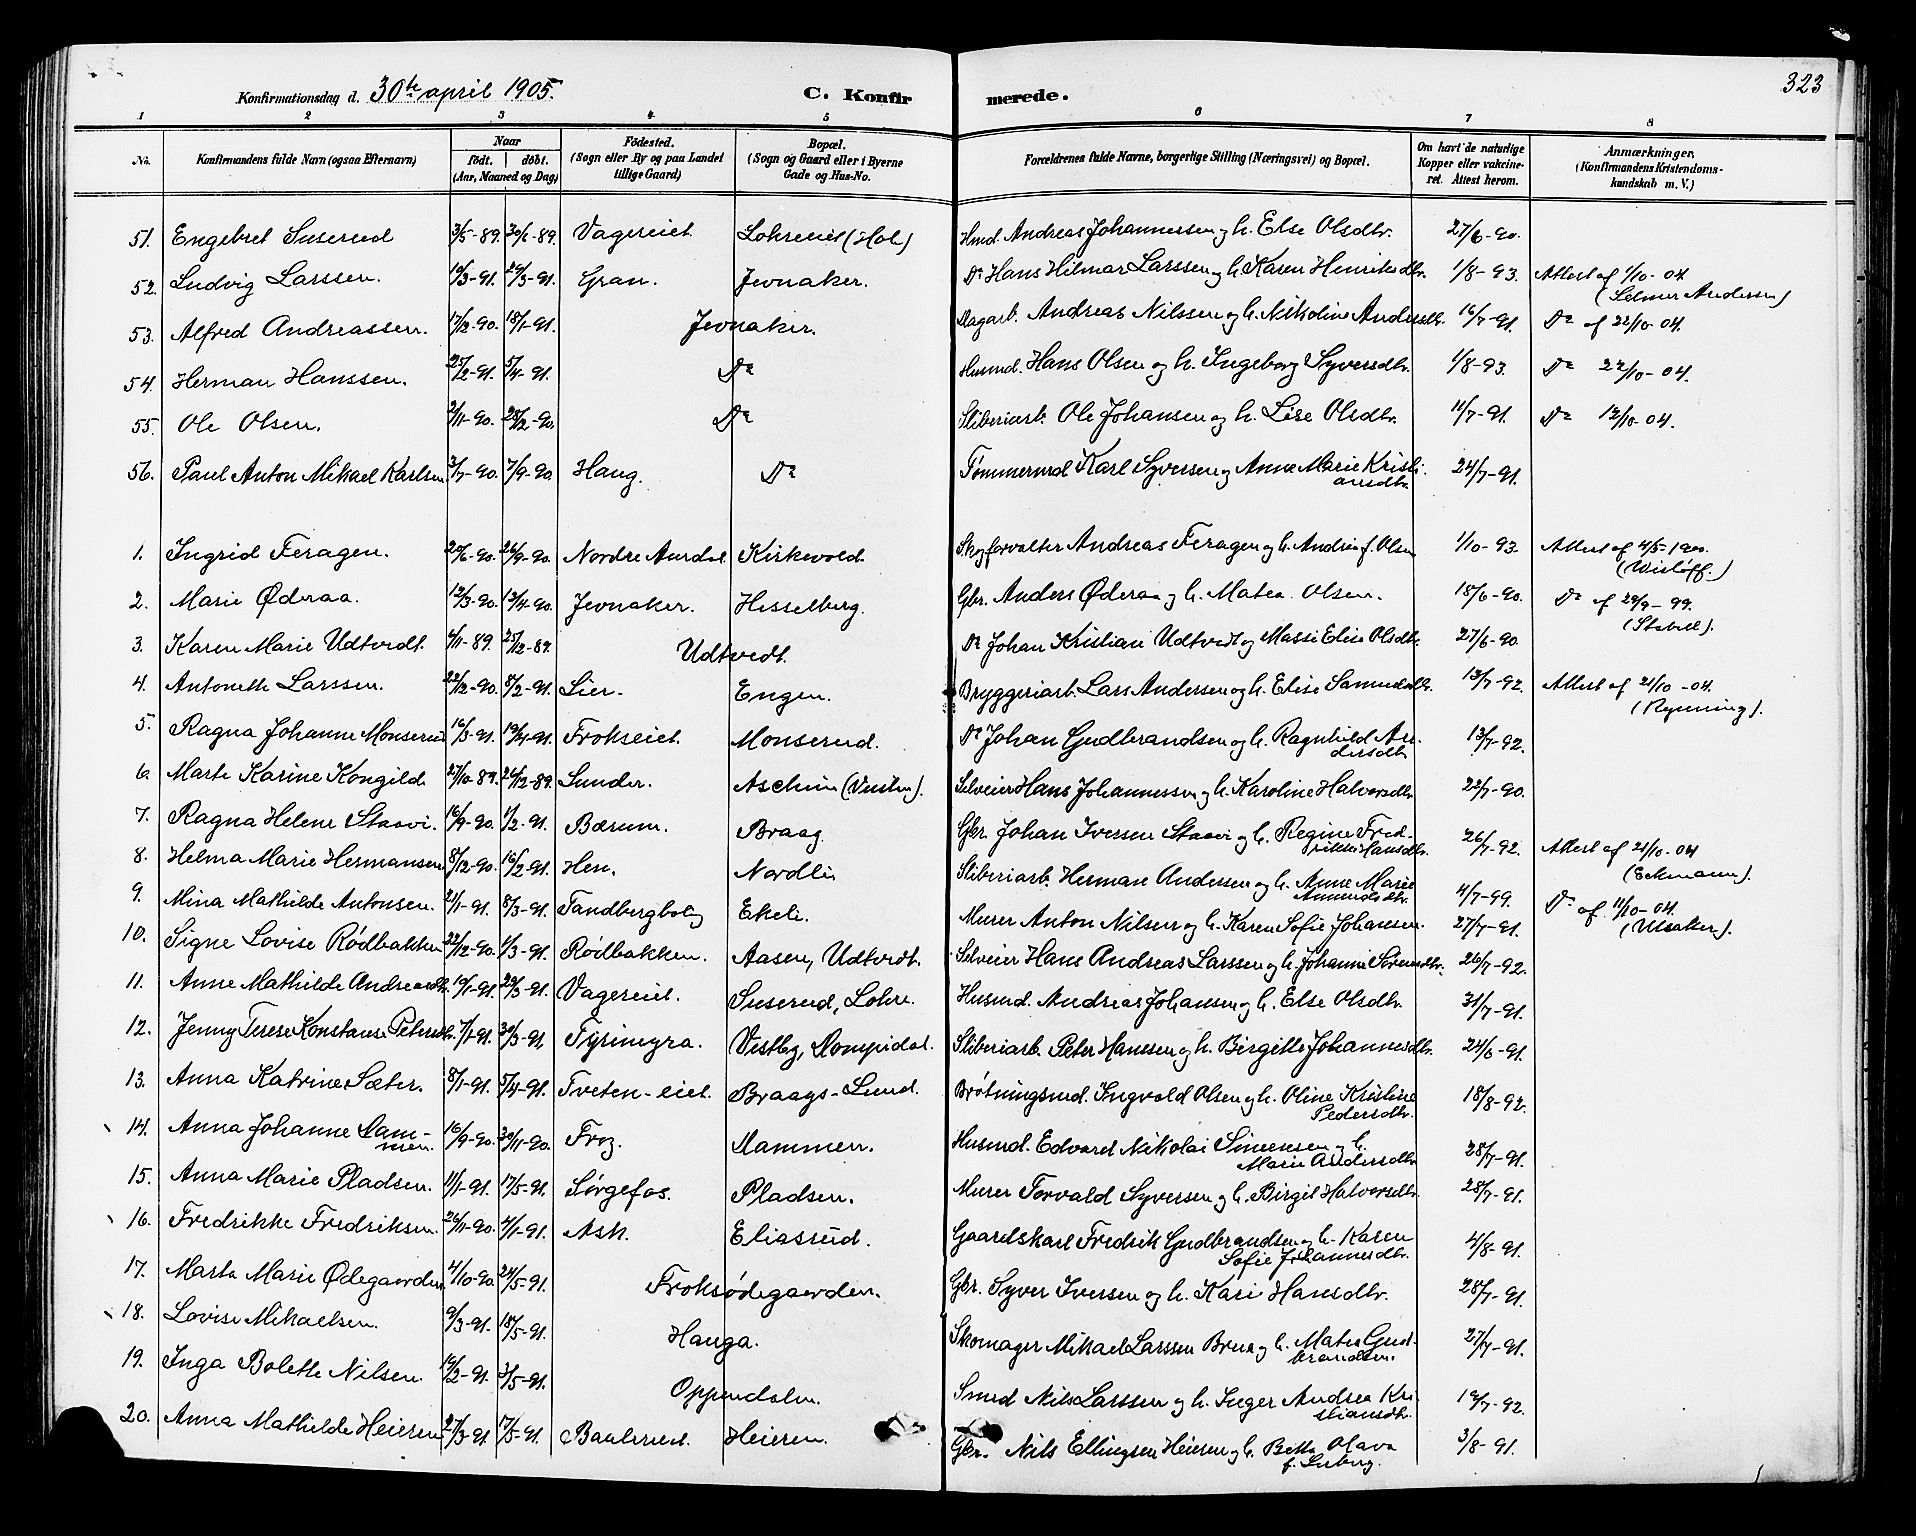 323
Konfirmationsdag d. 30te april 1905. C. Konfirmerede.
1 2 3 4 5 6 7 8
No. Konfirmandens fulde Navn (ogsaa Efternavn) Naar født. døbt. (Aar, Maaned og Dag) Fødested. (Sogn eller By og paa Landet tillige Gaard) Bopæl. (Sogn og Gaard eller i Byerne Gade og Hus-No. Forældrenes fulde Navne, borgerlige Stilling (Næringsvei) og Bopæl. Om havt de naturlige Kopper eller vakcineret. Attest herom. Anmærkninger, (Konfirmandens Kristendomskundskab m. V.)
51. Engebret Suserud 3/5-89. 30/6-89. Vagereiet Lokreeiet (Hol) Hmd. Andreas Johannessen og h. Else Olsdtr. 27/6-90.
52. Ludvig Larssen. 10/3-91. 29/3-91. Gran. Jevnaker. Do Hans Hilmar Larssen og h. Karen Henriksdtr. 1/8-93. Attest af 1/10-04 (Selmer Andersen)
53. Alfred Andreassen. 17/12-90. 18/1-91. Jevnaker. Dagarb. Andreas Nilssen og h. Nikoline Andersdtr. 16/7-91. Do af 22/10-04.
54. Herman Hanssen. 25/2-91. 5/4-91. Do Husmd. Hans Olsen og h. Ingeborg Syversdtr. 1/8-93. Do 22/10-04.
55. Ole Olsen. 2/11-90. 28/12-90. Do Sliberiarb. Ole Johansen og h. Lise Olsdtr. 11/7-91. Do 12/10-04.
56. Paul Anton Mikael Karlsen 3/7-90. 7/9-90. Haug. Do Tømmermd Karl Syversen og Anne Marie Kristiansdtr. 24/7-91.
1. Ingrid Feragen. 20/6-90. 26/9-90. Nordre Aurdal Kirkevold. Skogforvalter Andreas Feragen og h. Andrea f. Olsen 1/10-93. Attest af 4/5-1900. (Wisløff.)
2. Marie Øderaa. 12/3-90. 13/4-90. Jevnaker. Hesselberg. Gbr. Anders Øderaa og h. Matea Olsen. 18/6-90. Do af 29/9-99. (Stabell).
3. Karen Marie Udtvedt. 4/11-89. 25/12-89. Udtvedt. Do Johan Kristian Udtvedt og Massi Elise Olsdtr. 27/6-90
4. Antonette Larssen. 22/12-90. 8/2-91. Lier. Engen. Bryggeriarb. Lars Andersen og h. Elise Samuelsdtr. 13/7-92. Attest af 21/10-04. (Rynning).
5. Ragna Johanne Monserud 16/3-91. 19/4-91. Frokseiet. Monserud. Do Johan Gudbrandsen og h. Ragnhild Andersdtr. 13/7-92.
6. Marte Karine Kongilde 27/10-89. 26/12-89. Lunder. Aschim (Vestern). Selveier Hans Johannessen og h. Karoline Halvorsdtr. 22/7-90.
7. Ragna Helene Staavi. 16/9-90. 1/2-91. Bærum. Braag. Gbr. Johan Iversen Staavi og h. Regine Fredrikke Hansdtr. 26/7-92. Attest af 21/10-04 (Eckmann).
8. Helma Marie Hermansen 8/12-90. 16/2-91. Hen. Nordli Sliberiarb. Herman Andersen og h. Anne Marie Amundsdtr. 4/7-99. Do af 11/10-04. (Ulsaker).
9. Mina Mathilde Antonsen. 2/1-91. 8/3-91. Tandbergbolig Ekeli. Murer Anton Nilsen og h. Karen Sofie Johansen. 27/7-91.
10. Signe Lovise Rødbakken 22/12-90. 1/3-91. Rødbakken. Aasen, Udtvedt. Selveier Hans Andreas Larssen og h. Johanne Sørensdtr. 26/7-92.
11. Anne Mathilde Andreasdtr. 10/1-91. 29/3-91. Vagereiet. Suserud, Lohre. Husmd. Andreas Johansen og h. Else Olsdtr. 31/7-91.
12. Jenny Terese Konstanse Petersdtr. 7/1-91. 30/3-91. Tyrimyra. Vestby, Dompidal. Sliberiarb. Peter Hanssen og h. Birgitte Johannesdtr. 24/6-91.
13. Anna Katrine Sæter. 8/1-91. 5/4-91. Tveten-eiet. Braags-Lund. Brøtningsmd. Ingvald Olsen og h. Oline Kristine Pedersdtr. 18/8-92.
14. Anna Johanne Dammen. 16/9-90. 30/11-90. Frog. Dammen. Husmd. Edvard Nikolai Simensen og h. Marie Andersdtr. 28/7-91.
15. Anna Marie Pladsen. 11/1-91. 17/5-91. Sørgefos. Pladsen. Murer Torvald Syversen og h. Birgit Halvorsdtr. 28/7-91.
16. Fredrikke Fredriksen. 26/11-90. 4/1-91. Ask. Eliasrud. Gaardskarl Fredrik Gudbrandsen og h. Karen Sofie Johannesdtr. 4/8-91.
17. Marta Marie Ødegaarden 4/10-90. 24/5-91. Froksødegaarden. Gbr. Syver Iversen og h. Kari Hansdtr. 28/7-91.
18. Lovise Mikaelsen. 9/3-91. 18/5-91. Hauga. Skomager Mikael Larssen Bruu og h. Matea Gudbrandsen. 27/7-91.
19. Inga Bolette Nilsen. 10/2-91. 3/5-91. Oppendalen. Smed Nils Larssen og h. Inger Andrea Kristiansdtr. 19/7-92.
20. Anna Mathilde Heieren 27/3-91. 17/5-91. Baalsrud. Heieren. Gbr. Nils Ellingsen Heieren og h. Betta Olava f. 3/8-91.